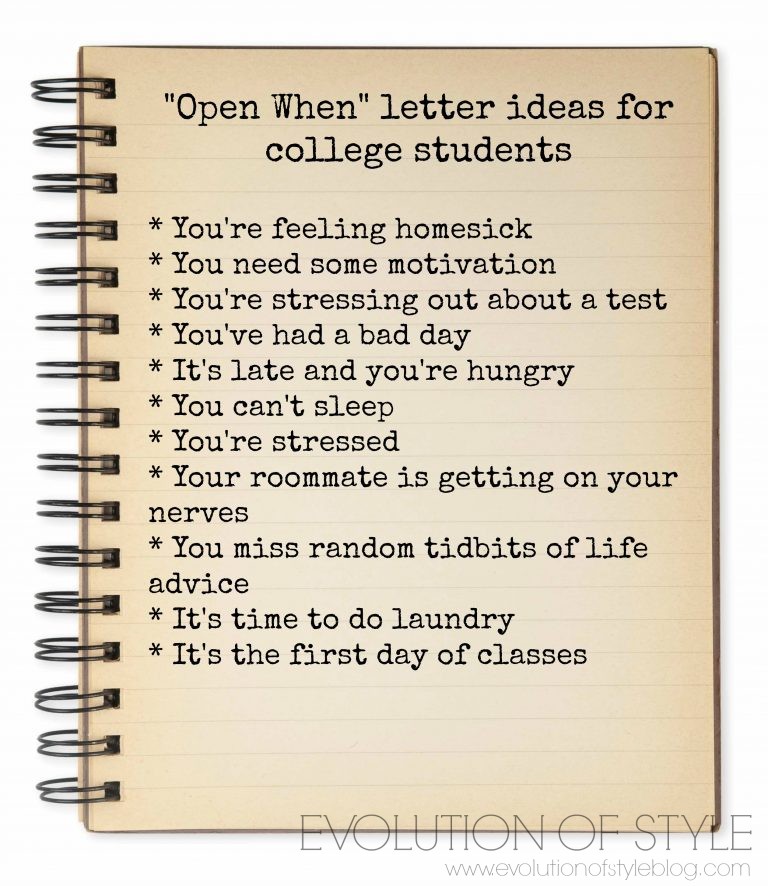 "Open When" letter ideas for
college students
* You're feeling homesick
* You need some motivation
* You're stressing out about a test
* You've had a bad day
* It's late and you're hungry
* You can't sleep
* You're stressed
* Your roommate is getting on your
nerves
* You miss random tidbits of life
advice
* It's time to do laundry
* It's the first day of classes
EVOLUTION OF STYLE
www.evolutionofstyleblog.com